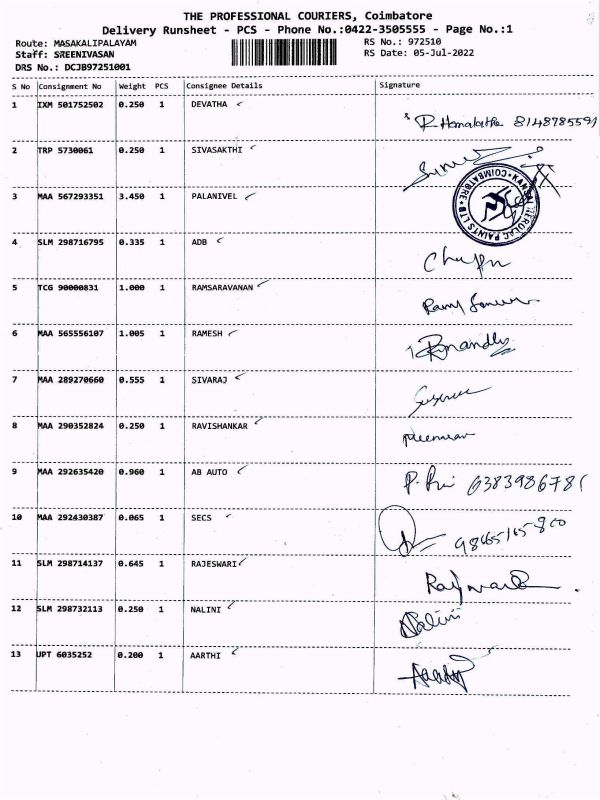 THE PROFESSIONAL COURIERS, Coimbatore
Delivery Runsheet - PCS - Phone No.:0422-3505555 - Page No.:1
Route: MASAKALIPALAYAM RS No.: 972510
Staff: SREENIVASAN RS Date: 05-Jul-2022
DRS No.: DCJB97251001
S No Consignment No Weight PCS Consignee Details Signature
1 IXM 501752502 0.250 1 DEVATHA 8148785591
2 TRP 5730061 0.250 1 SIVASAKTHI
3 MAA 567293351 3.450 1 PALANIVEL KANSAI NEROLAC PAINTS LTD COIMBATORE
4 SLM 298716795 0.335 1 ADB
5 TCG 90000831 1.000 1 RAMSARAVANAN
6 MAA 565556107 1.005 1 RAMESH
7 MAA 289270660 0.555 1 SIVARAJ
8 MAA 290352824 0.250 1 RAVISHANKAR
9 MAA 292635420 0.960 1 AB AUTO
10 MAA 292430387 0.065 1 SECS
11 SLM 298714137 0.645 1 RAJESWARI
12 SLM 298732113 0.250 1 NALINI Nalini
13 UPT 6035252 0.200 1 AARTHI